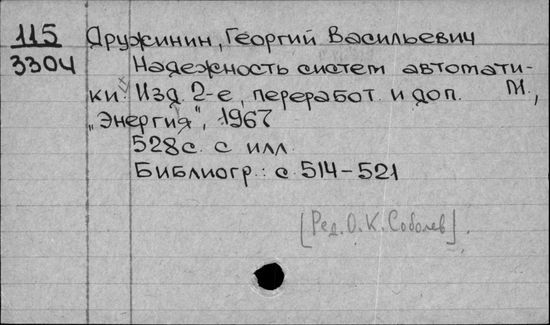 115 Дружинин, Георгий Васильевич
3304 Надежность систем автомати-
ки. Изд. 2-е, переработ. и доп. М.,
"Энергия", 1967
528 с. с илл.
Библиогр.: с 514-521
[Ред. О. К. Соболев].